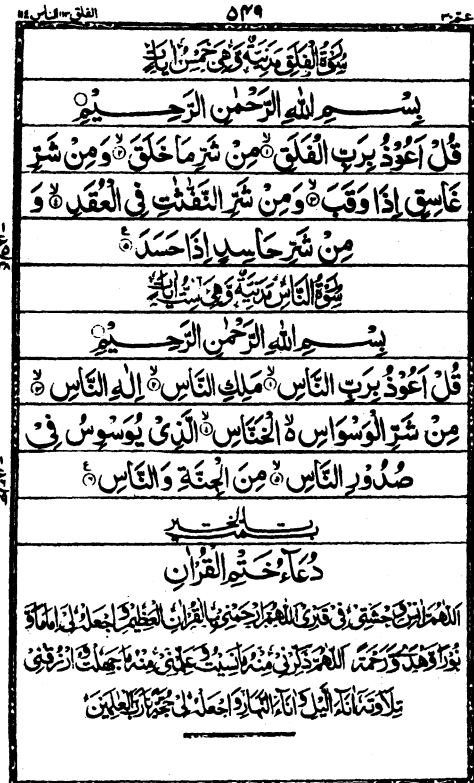 الفلق ١١٣ الناس ١١٤ ٥٤٩ عمّ ٣٠
سُوْرَةُ الْفَلَقِ مَدَنِيَّةٌ وَّهِىَ خَمْسُ اٰيَاتٍ
بِسْمِ اللّٰهِ الرَّحْمٰنِ الرَّحِيْمِ ○
قُلْ اَعُوْذُ بِرَبِّ الْفَلَقِ ۙ‏١ مِنْ شَرِّ مَا خَلَقَ ۙ‏٢ وَمِنْ شَرِّ
غَاسِقٍ اِذَا وَقَبَ ۙ‏٣ وَمِنْ شَرِّ النَّفّٰثٰتِ فِى الْعُقَدِ ۙ‏٤ وَ
مِنْ شَرِّ حَاسِدٍ اِذَا حَسَدَ ‏٥ ع
سُوْرَةُ النَّاسِ مَدَنِيَّةٌ وَّهِىَ سِتُّ اٰيَاتٍ
بِسْمِ اللّٰهِ الرَّحْمٰنِ الرَّحِيْمِ ○
قُلْ اَعُوْذُ بِرَبِّ النَّاسِ ۙ‏١ مَلِكِ النَّاسِ ۙ‏٢ اِلٰهِ النَّاسِ ۙ‏٣
مِنْ شَرِّ الْوَسْوَاسِ ۙ۵ الْخَنَّاسِ ۙ‏٤ الَّذِىْ يُوَسْوِسُ فِىْ
صُدُوْرِ النَّاسِ ۙ‏٥ مِنَ الْجِنَّةِ وَالنَّاسِ ‏٦ ع
تمت بالخير
دُعَآءُ خَتْمِ الْقُرْاٰنِ
اَللّٰهُمَّ اٰنِسْ وَحْشَتِىْ فِىْ قَبْرِىْ اَللّٰهُمَّ ارْحَمْنِىْ بِالْقُرْاٰنِ الْعَظِيْمِ وَاجْعَلْهُ لِىْ اِمَامًا وَّ
نُوْرًا وَّهُدًى وَّرَحْمَةً اَللّٰهُمَّ ذَكِّرْنِىْ مِنْهُ مَا نَسِيْتُ وَعَلِّمْنِىْ مِنْهُ مَا جَهِلْتُ وَارْزُقْنِىْ
تِلَاوَتَهٗ اٰنَآءَ الَّيْلِ وَاٰنَآءَ النَّهَارِ وَاجْعَلْهُ لِىْ حُجَّةً يَّا رَبَّ الْعٰلَمِيْنَ